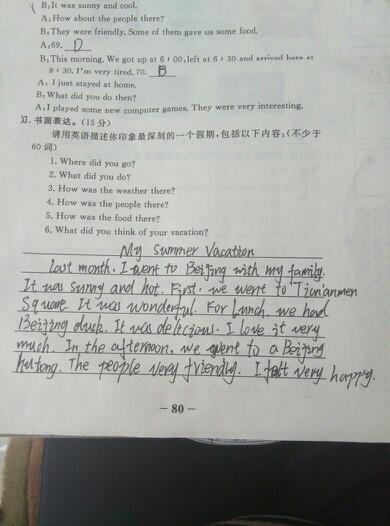 B: It was sunny and cool.
A: How about the people there?
B: They were friendly. Some of them gave us some food.
A: 69. D
B: This morning. We got up at 6:00, left at 6:30 and arrived here at
8:30. I'm very tired. 70. B
A: I just stayed at home.
B: What did you do then?
A: I played some new computer games. They were very interesting.
Ⅺ. 书面表达。(15分)
请用英语描述你印象最深刻的一个假期,包括以下内容:(不少于
60词)
1. Where did you go?
2. What did you do?
3. How was the weather there?
4. How was the people there?
5. How was the food there?
6. What did you think of your vacation?
My Summer Vacation
Last month. I went to Beijing with my family.
It was sunny and hot. First, we went to Tian'anmen
Square. It was wonderful. For lunch, we had
Beijing duck. It was delicious. I love it very
much. In the afternoon, we went to a Beijing
hutong. The people very friendly. I felt very happy.
— 80 —